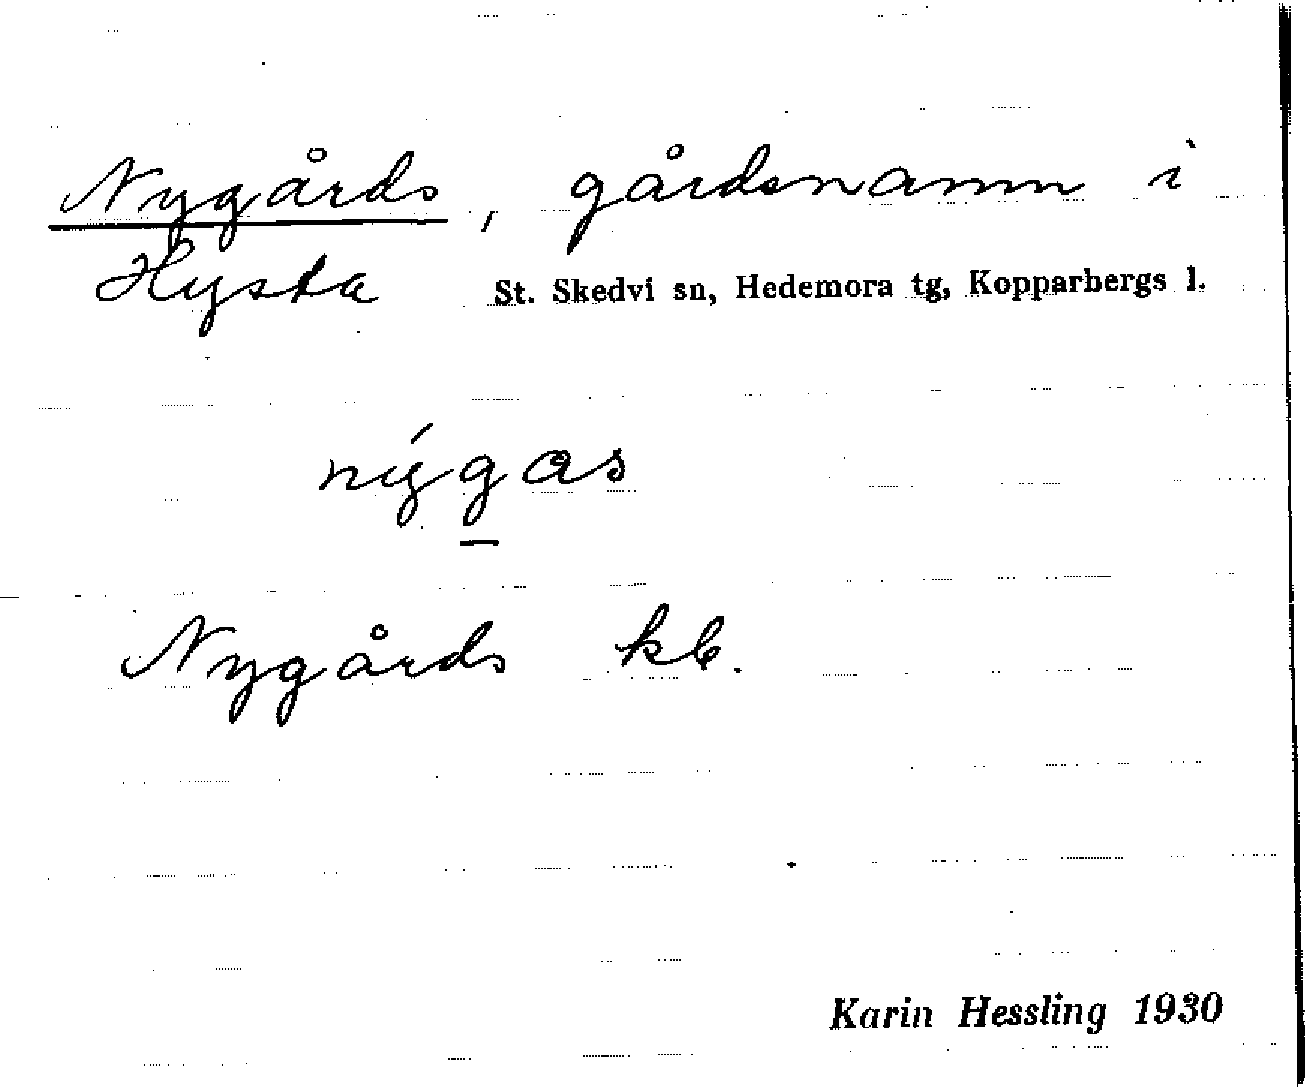 Nygårds, gårdsnamn i
Hysta St. Skedvi sn, Hedemora tg, Kopparbergs l.
nýgas
Nygårds kb.
Karin Hessling 1930